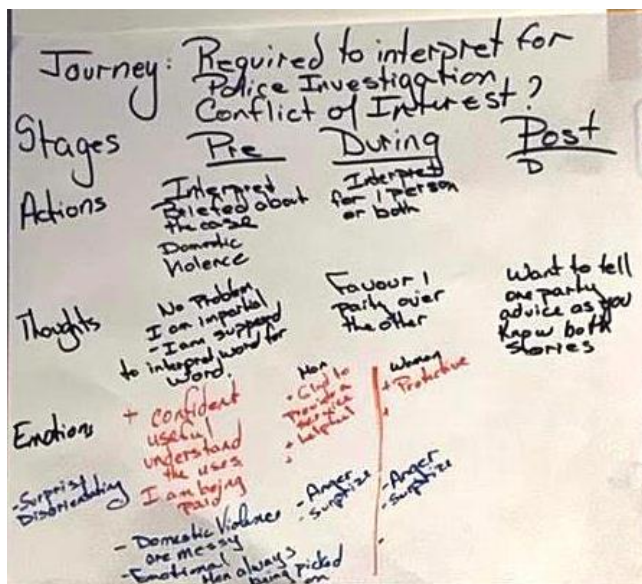 Journey: Required to interpret for
Police Investigation
Conflict of Interest?
Stages Pre During Post
Actions
Interpreted
about
the case
Domestic
Violence
Interpret
for 1 person
or both
D
Thoughts
No Problem
I am impartial
- I am supposed
to interpret word for
word.
Favour 1
party over
the other
Want to tell
one party
advice as you
know both
stories
Emotions
+ confident
useful
understand
the uses
I am being
paid
Men
+ Glad to
provide a
service
+ helpful
Woman
+ Protective
+
- Surprise
Disorientating
- Domestic Violence
are messy
- Emotional
Men always
being picked
on
- Anger
- surprize
- Anger
- surprize